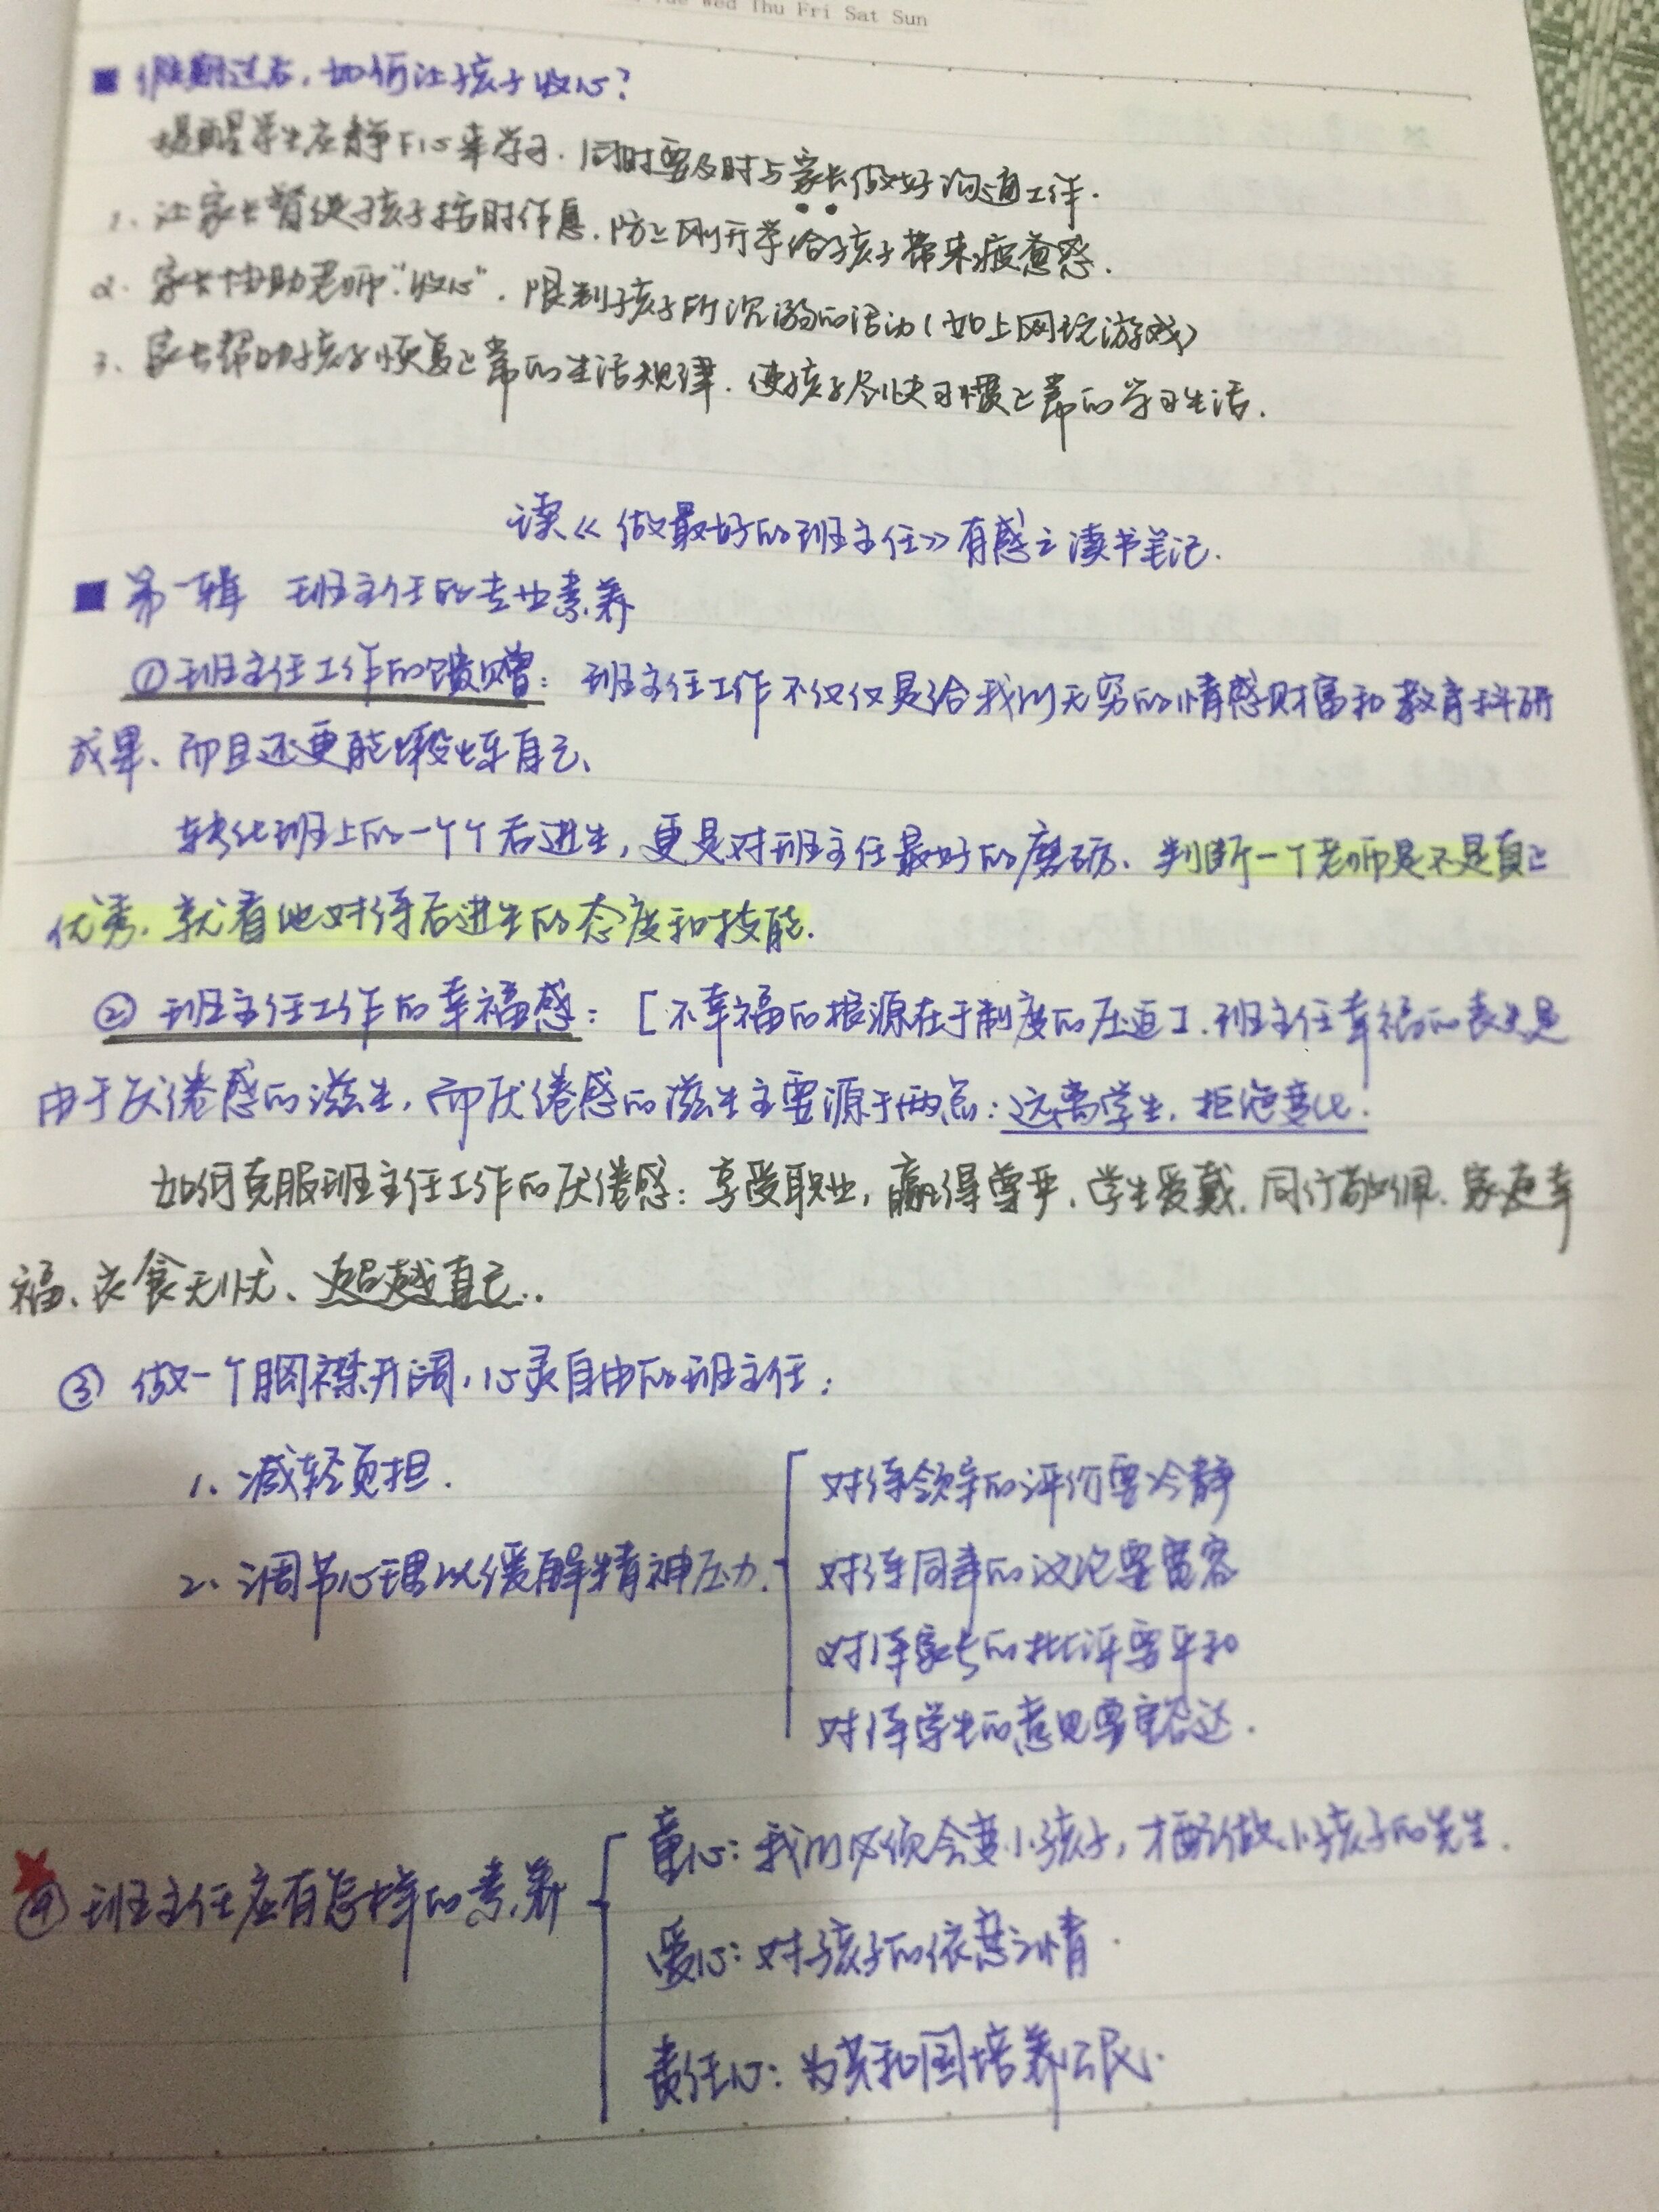 Wed Thu Fri Sat Sun
■ 假期过后，如何让孩子收心？
提醒学生应静下心来学习．同时要及时与家长做好沟通工作．
1、让家长督促孩子按时作息．防止刚开学给孩子带来疲惫感．
2．家长协助老师"收心"．限制孩子所沉溺的活动（如上网玩游戏）
3、家长帮助孩子恢复正常的生活规律．使孩子尽快习惯正常的学习生活．
读《做最好的班主任》有感之读书笔记．
■ 第一辑 班主任的专业素养
① 班主任工作的馈赠：班主任工作不仅仅是给我们无穷的情感财富和教育科研
成果、而且还更能锻炼自己、
转化班上的一个个后进生，更是对班主任最好的磨砺、判断一个老师是不是真正
优秀．就看他对待后进生的态度和技能．
② 班主任工作的幸福感：［不幸福的根源在于制度的压迫］．班主任幸福的丧失是
由于厌倦感的滋生，而厌倦感的滋生主要源于两点：远离学生，拒绝变化．
如何克服班主任工作的厌倦感：享受职业，赢得尊严，学生爱戴．同行敬佩．家庭幸
福、衣食无忧、超越自己．．
③ 做一个胸襟开阔，心灵自由的班主任：
1、减轻负担．
2、调节心理以缓解精神压力．
对待领导的评价要冷静
对待同事的议论要宽容
对待家长的批评要平和
对待学生的意见要豁达．
④ 班主任应有怎样的素养
童心：我们必须会变小孩子，才配做小孩子的先生．
爱心：对孩子的依恋之情．
责任心：为共和国培养公民．